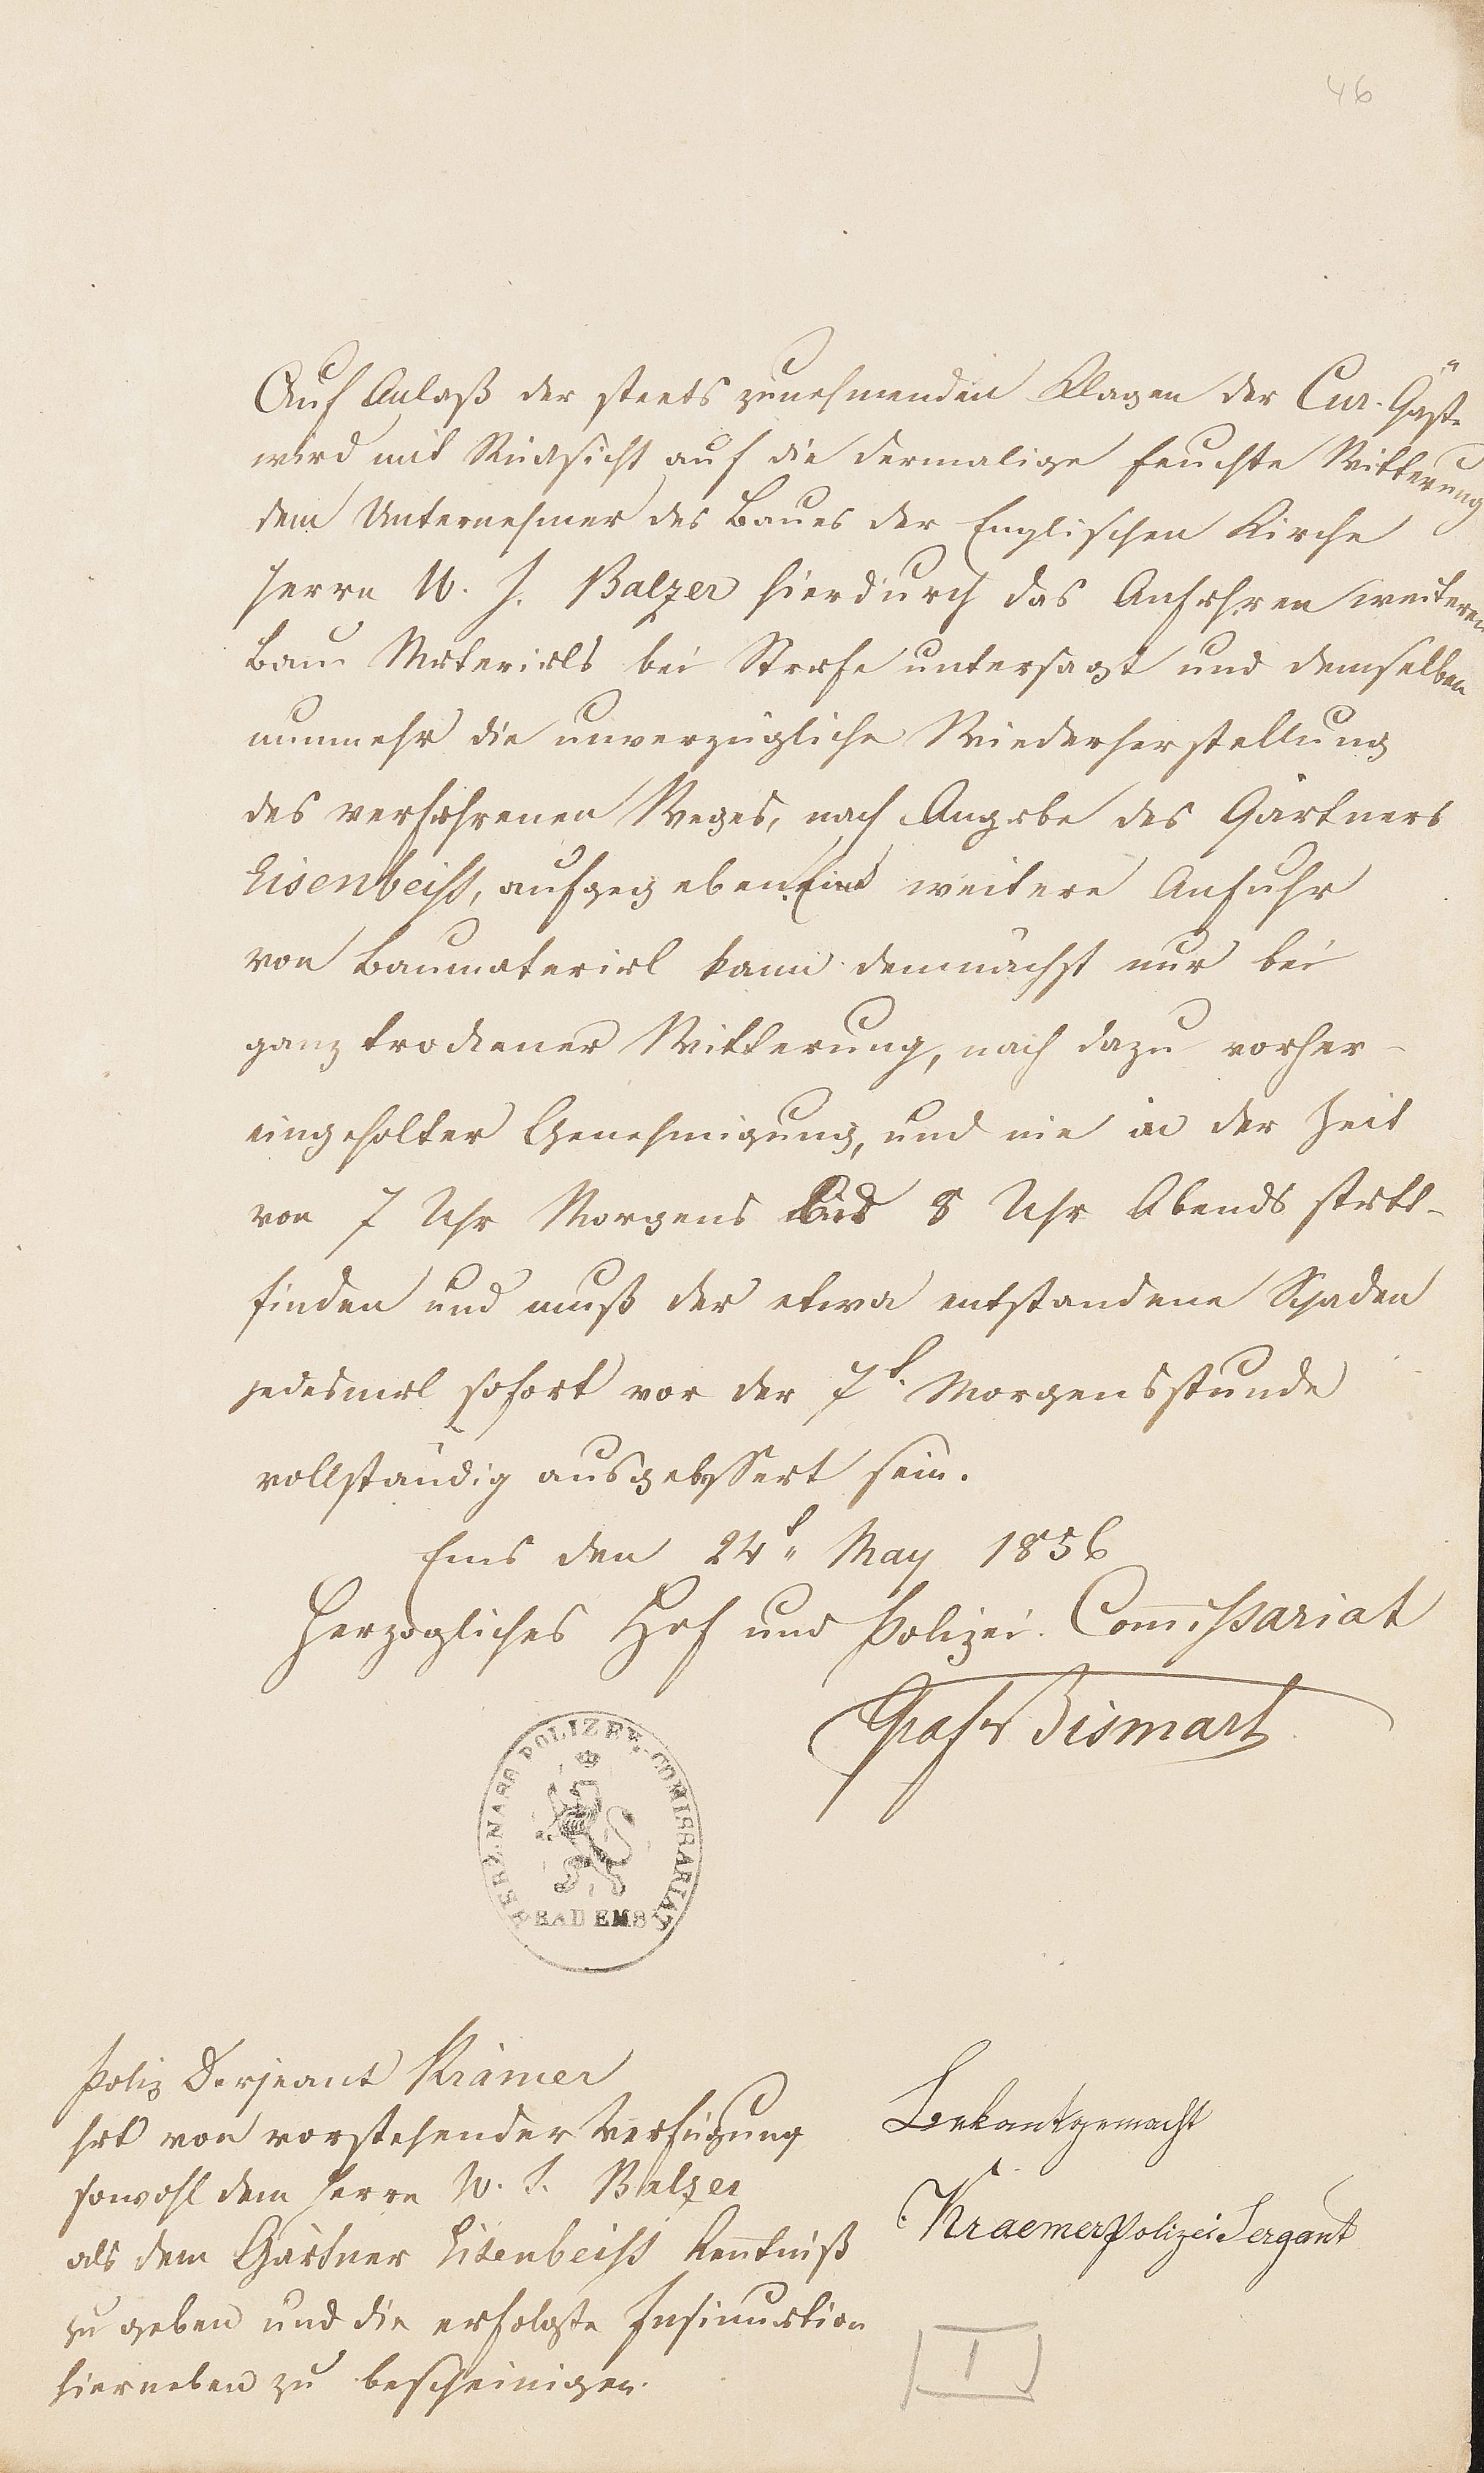 46
Auf Anlaß der steets zunehmenden Klagen der Cur-Gäste
wird mit Rücksicht auf die dermalige feuchte Witterung
dem Unternehmer des Baues der Englischen Kirche
Herrn W. J. Balzer hierdurch das Anfahren weiteren
Bau Materials bei Strafe untersagt und demselben
nunmehr die unverzügliche Wiederherstellung
des verfahrenen Weges, nach Angabe des Gärtners
Eisenbeiss, aufgegeben. Eine weitere Anfuhr
von Baumaterial kann demnächst nur bei
ganz trockener Witterung, nach dazu vorher-
eingeholter Genehmigung, und nie in der Zeit
von 7 Uhr Morgens bis 8 Uhr Abends statt-
finden und muß der etwa entstandene Schaden
jedesmal sofort vor der 7t. Morgensstunde
vollständig ausgebessert sein.
Ems den 24t May 1856
Herzogliches Hof und Polizei-Commissariat
Graf v Bismark
HERZ. NASS. POLIZEY-COMISSARIAT
BAD EMS
Poliz Serjeant Krämer
hat von vorstehender Verfügung
sowohl dem Herrn W. J. Balzer
als dem Gärtner Eisenbeiss Kenntniß
zu geben und die erfolgte Insinuation
hierneben zu bescheinigen.
Bekantgemacht
Kraemer Polizei Sergant
I